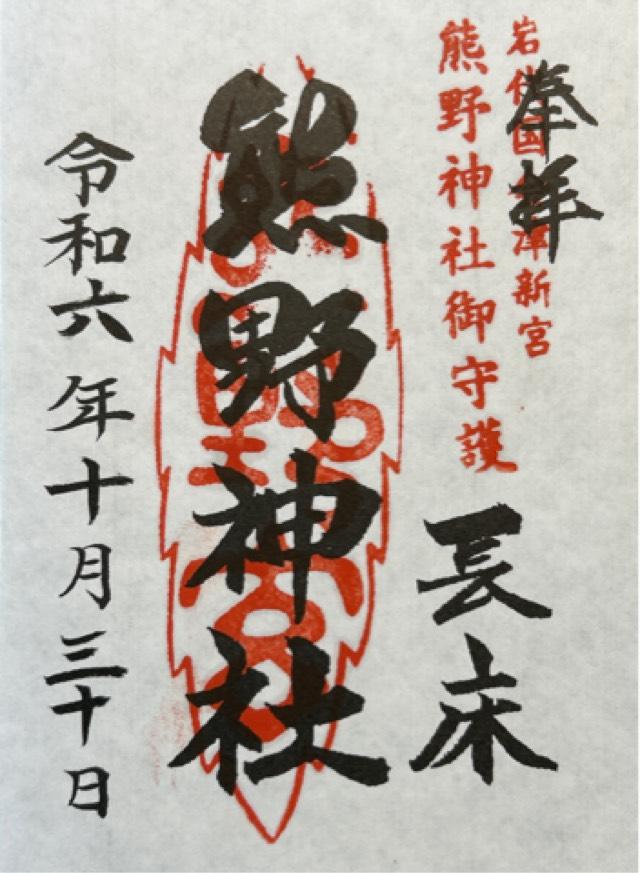 奉拝
岩代国会津新宮
熊野神社御守護
長床
熊野神社
令和六年十月三十日